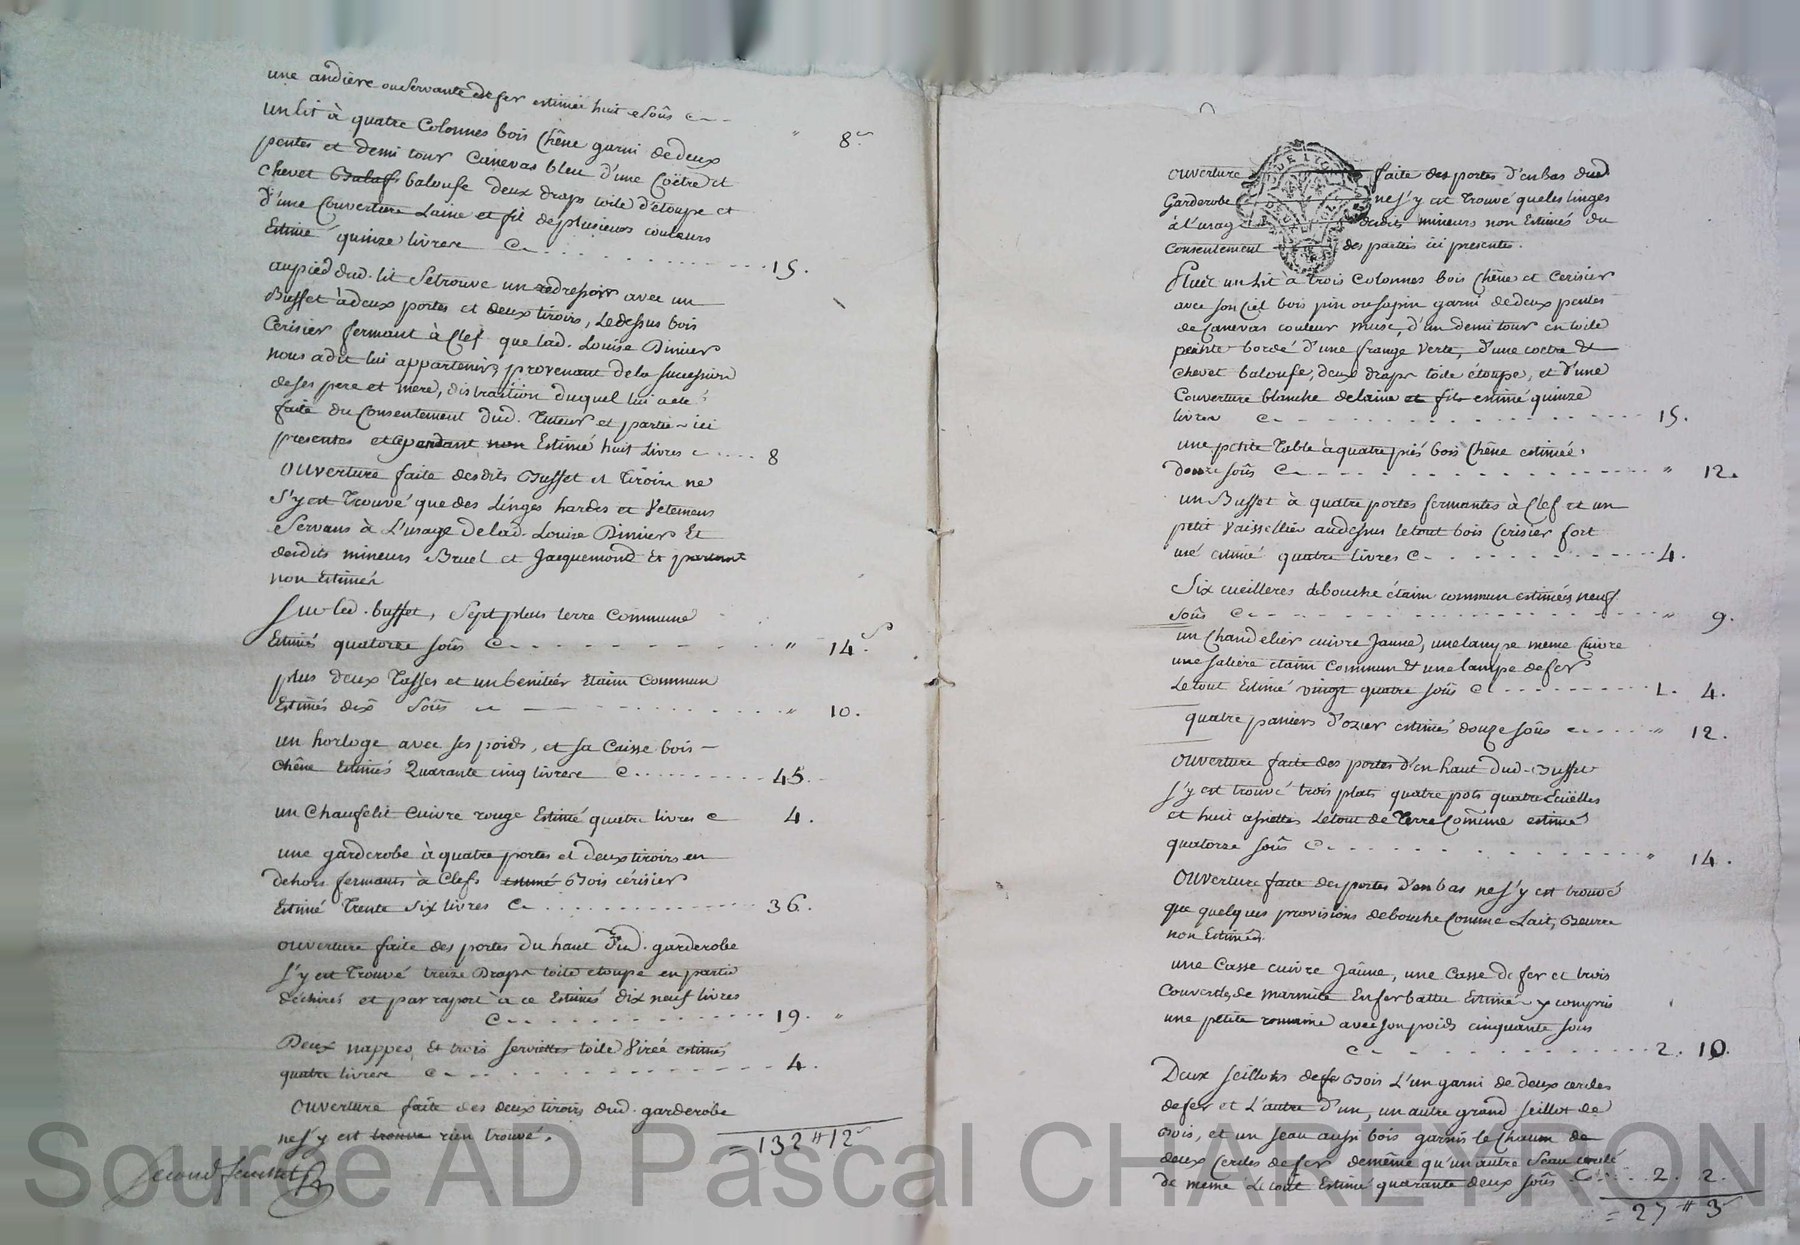 une andiere ou servante de fer estimée huit sous c - - " 8s
un lit à quatre Colonnes bois Chêne garni de deux
pentes et demi tour Canevas bleu d'une Coëtre et
chevet Balouse deux draps toile d'étoupe et
d'une Couverture Laine et fil de plusieurs couleurs
Estimé quinze livres C - - - 15.
au pied dud. lit se trouve un avec un
Buffet à deux portes et deux tiroirs, le dessus bois
Cerisier fermant à Clef que lad. Louise Dimier
nous a dit lui appartenir, provenant de la succession
de ses pere et mere, distraction duquel lui a été
faite du Consentement dud. Tuteur et parties ici
presentes et cependant non Estimé huit Livres c - - 8
Ouverture faite desdits Buffet et Tiroirs ne
s'y est Trouvé que des Linges hardes et Vetemens
Servans à L'usage de lad. Louise Dimier Et
desdits mineurs Bruel et Jacquemond Et partant
non Estimés
Sur led. buffet, Sept plats terre Commune
Estimés quatorze sous C - - - " 14.s
plus deux Tasses et un benitier Etaim Commun
Estimés dix Sous - - - " 10.
un horloge avec ses poids, et sa Caisse bois -
chêne Estimés Quarante cinq livres C - - - 45.
un Chaufelit Cuivre rouge Estimé quatre livres c 4.
une garderobe à quatre portes et deux tiroirs en
dehors fermants à Clefs estimé Bois cérisier
Estimé Trente Six livres C - - - 36.
ouverture faite des portes du haut dud. garderobe
s'y est Trouvé treize Draps toile etoupe en partie
déchirés et par raport à ce Estimés dix neuf livres
C - - - 19. "
Deux nappes, et trois serviettes toile Virée estimés
quatre livres C - - - 4.
Ouverture faite des deux tiroirs dud. garderobe
ne s'y est trouvé rien trouvé.
= 132 # 12s
Second feuillet
ouverture faite des portes d'en bas dud
Garderobe ne s'y est Trouvé que les linges
à l'usage desdits mineurs non Estimés du
Consentement des parties ici presentes.
Plus un Lit à trois Colonnes bois Chêne et Cerisier
avec son Ciel bois pin ou sapin garni de deux pentes
de Canevas couleur musc, d'un demi tour en toile
peinte bordé d'une frange Verte, d'une coetre et
Chevet balouse, deux draps toile étoupe, et d'une
Couverture blanche de laine et fils estimé quinze
livres C - - - 15.
une petite Table à quatre piés bois Chêne estimée
douze sous C - - - " 12.
un Buffet à quatre portes fermantes à Clef et un
petit Vaissellier au dessus le tout bois Cerisier fort
usé estimé quatre livres C - - - 4.
Six cueilleres de bouche étaim commun estimées neuf
sous C - - - " 9.
un Chandelier cuivre Jaune, une lampe meme Cuivre
une saliere etaim Commun et une lampe de fer
Le tout Estimé vingt quatre sous C - - - 1. 4.
quatre paniers d'ozier estimés douze sous c - - - " 12.
Ouverture faite des portes d'en haut dud. Buffet
s'y est trouvé trois plats quatre pots quatre Ecüelles
et huit assiettes Le tout de Terre Comme estimé
quatorze sous C - - - " 14.
Ouverture faite des portes d'en bas ne s'y est trouvé
que quelques provisions de bouche Comme Lait, Beurre
non Estimés.
une Casse cuivre Jaune, une Casse de fer et trois
Couvercles de marmite En fer battu Estimés y compris
une petite romaine avec son poids cinquante sous
C - - - 2. 10.
Deux seillots de fer Bois L'un garni de deux cercles
de fer et L'autre d'un, un autre grand seillot de
Bois, et un seau aussi bois garnis le Chacun de
deux Cercles de fer de même qu'un autre Seau cerclé
de meme Le tout Estimé quarante deux sous C - - - 2. 2.
= 27 # 3s
Source AD Pascal CHAREYRON